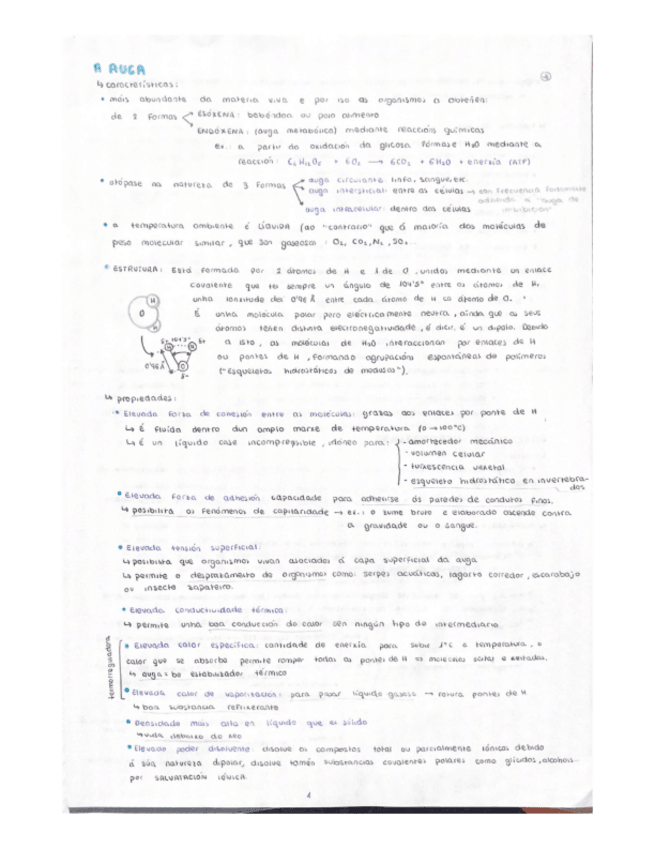 A AUGA
①
↳ características:
• máis abundante da materia viva e por iso os organismos a obteñen
de 2 formas < ESÓXENA: bebéndoa ou polo alimento
ENDÓXENA: (auga metabólica) mediante reaccións químicas
ex.: a partir da oxidación da glicosa fórmase H2O mediante a
reacción: C6H12O6 + 6O2 → 6CO2 + 6H2O + enerxía (ATP)
• atópase na natureza de 3 formas auga circulante: linfa, sangue, etc.
auga intersticial: entre as células → con frecuencia fortemente
adherida a "auga de
imbibición"
auga intracelular: dentro das células
• a temperatura ambiente é LÍQUIDA (ao "contrario" que a maioría das moléculas de
peso molecular similar, que son gaseosas: O2, CO2, N2, SO2...
• ESTRUTURA: Está formada por 2 átomos de H e 1 de O, unidos mediante un enlace
covalente que ten sempre un ángulo de 104'5° entre os átomos de H.
unha lonxitude de 0'96 Å entre cada átomo de H co átomo de O.
É unha molécula polar pero electricamente neutra, aínda que os seus
átomos teñen distinta electronegatividade, é dicir, é un dipolo. Debido
a isto, as moléculas de H2O interaccionan por enlaces de H
ou pontes de H, formando agrupacións espontáneas de polímeros
("esqueletos hidrostáticos de medusas").
H
O
H
δ+ 104'5° δ+
H H
0'96 Å
O
δ-
↳ propiedades:
• Elevada forza de cohesión entre as moléculas: grazas aos enlaces por ponte de H
↳ É fluída dentro dun amplo marxe de temperatura (0→100°C)
↳ É un líquido case incompresible, idóneo para: - amortecedor mecánico
- volumen celular
- turxescencia vexetal
- esqueleto hidrostático en invertebra-
dos
• Elevada forza de adhesión capacidade para adherirse ás paredes de condutos finos.
↳ posibilita os fenómenos de capilaridade → ex.: o zume bruto e elaborado ascende contra
a gravidade ou o sangue.
• Elevada tensión superficial:
↳ posibilita que organismos vivan asociados á capa superficial da auga
↳ permite o desprazamento de organismos como: serpes acuáticas, lagarto corredor, escarabajo
ou insecto zapateiro.
• Elevada conductividade térmica:
↳ permite unha boa conducción do calor sen ningún tipo de intermediario.
termorreguladora
• Elevada calor específica: cantidade de enerxía para subir 1°C a temperatura, o
calor que se absorbe permite romper todas as pontes de H ⇒ moléculas soltas e excitadas.
↳ auga = bo estabilizador térmico
• Elevada calor de vaporización: para pasar líquido gasoso → rotura pontes de H
↳ boa sustancia refrixerante
• Densidade máis alta en líquido que en sólido
↳ vida debaixo do xeo
• Elevado poder disolvente: disolve os compostos total ou parcialmente iónicos debido
á súa natureza dipolar, disolve tamén substancias covalentes polares como glícidos, alcohois...
por SOLVATACIÓN IÓNICA.
1